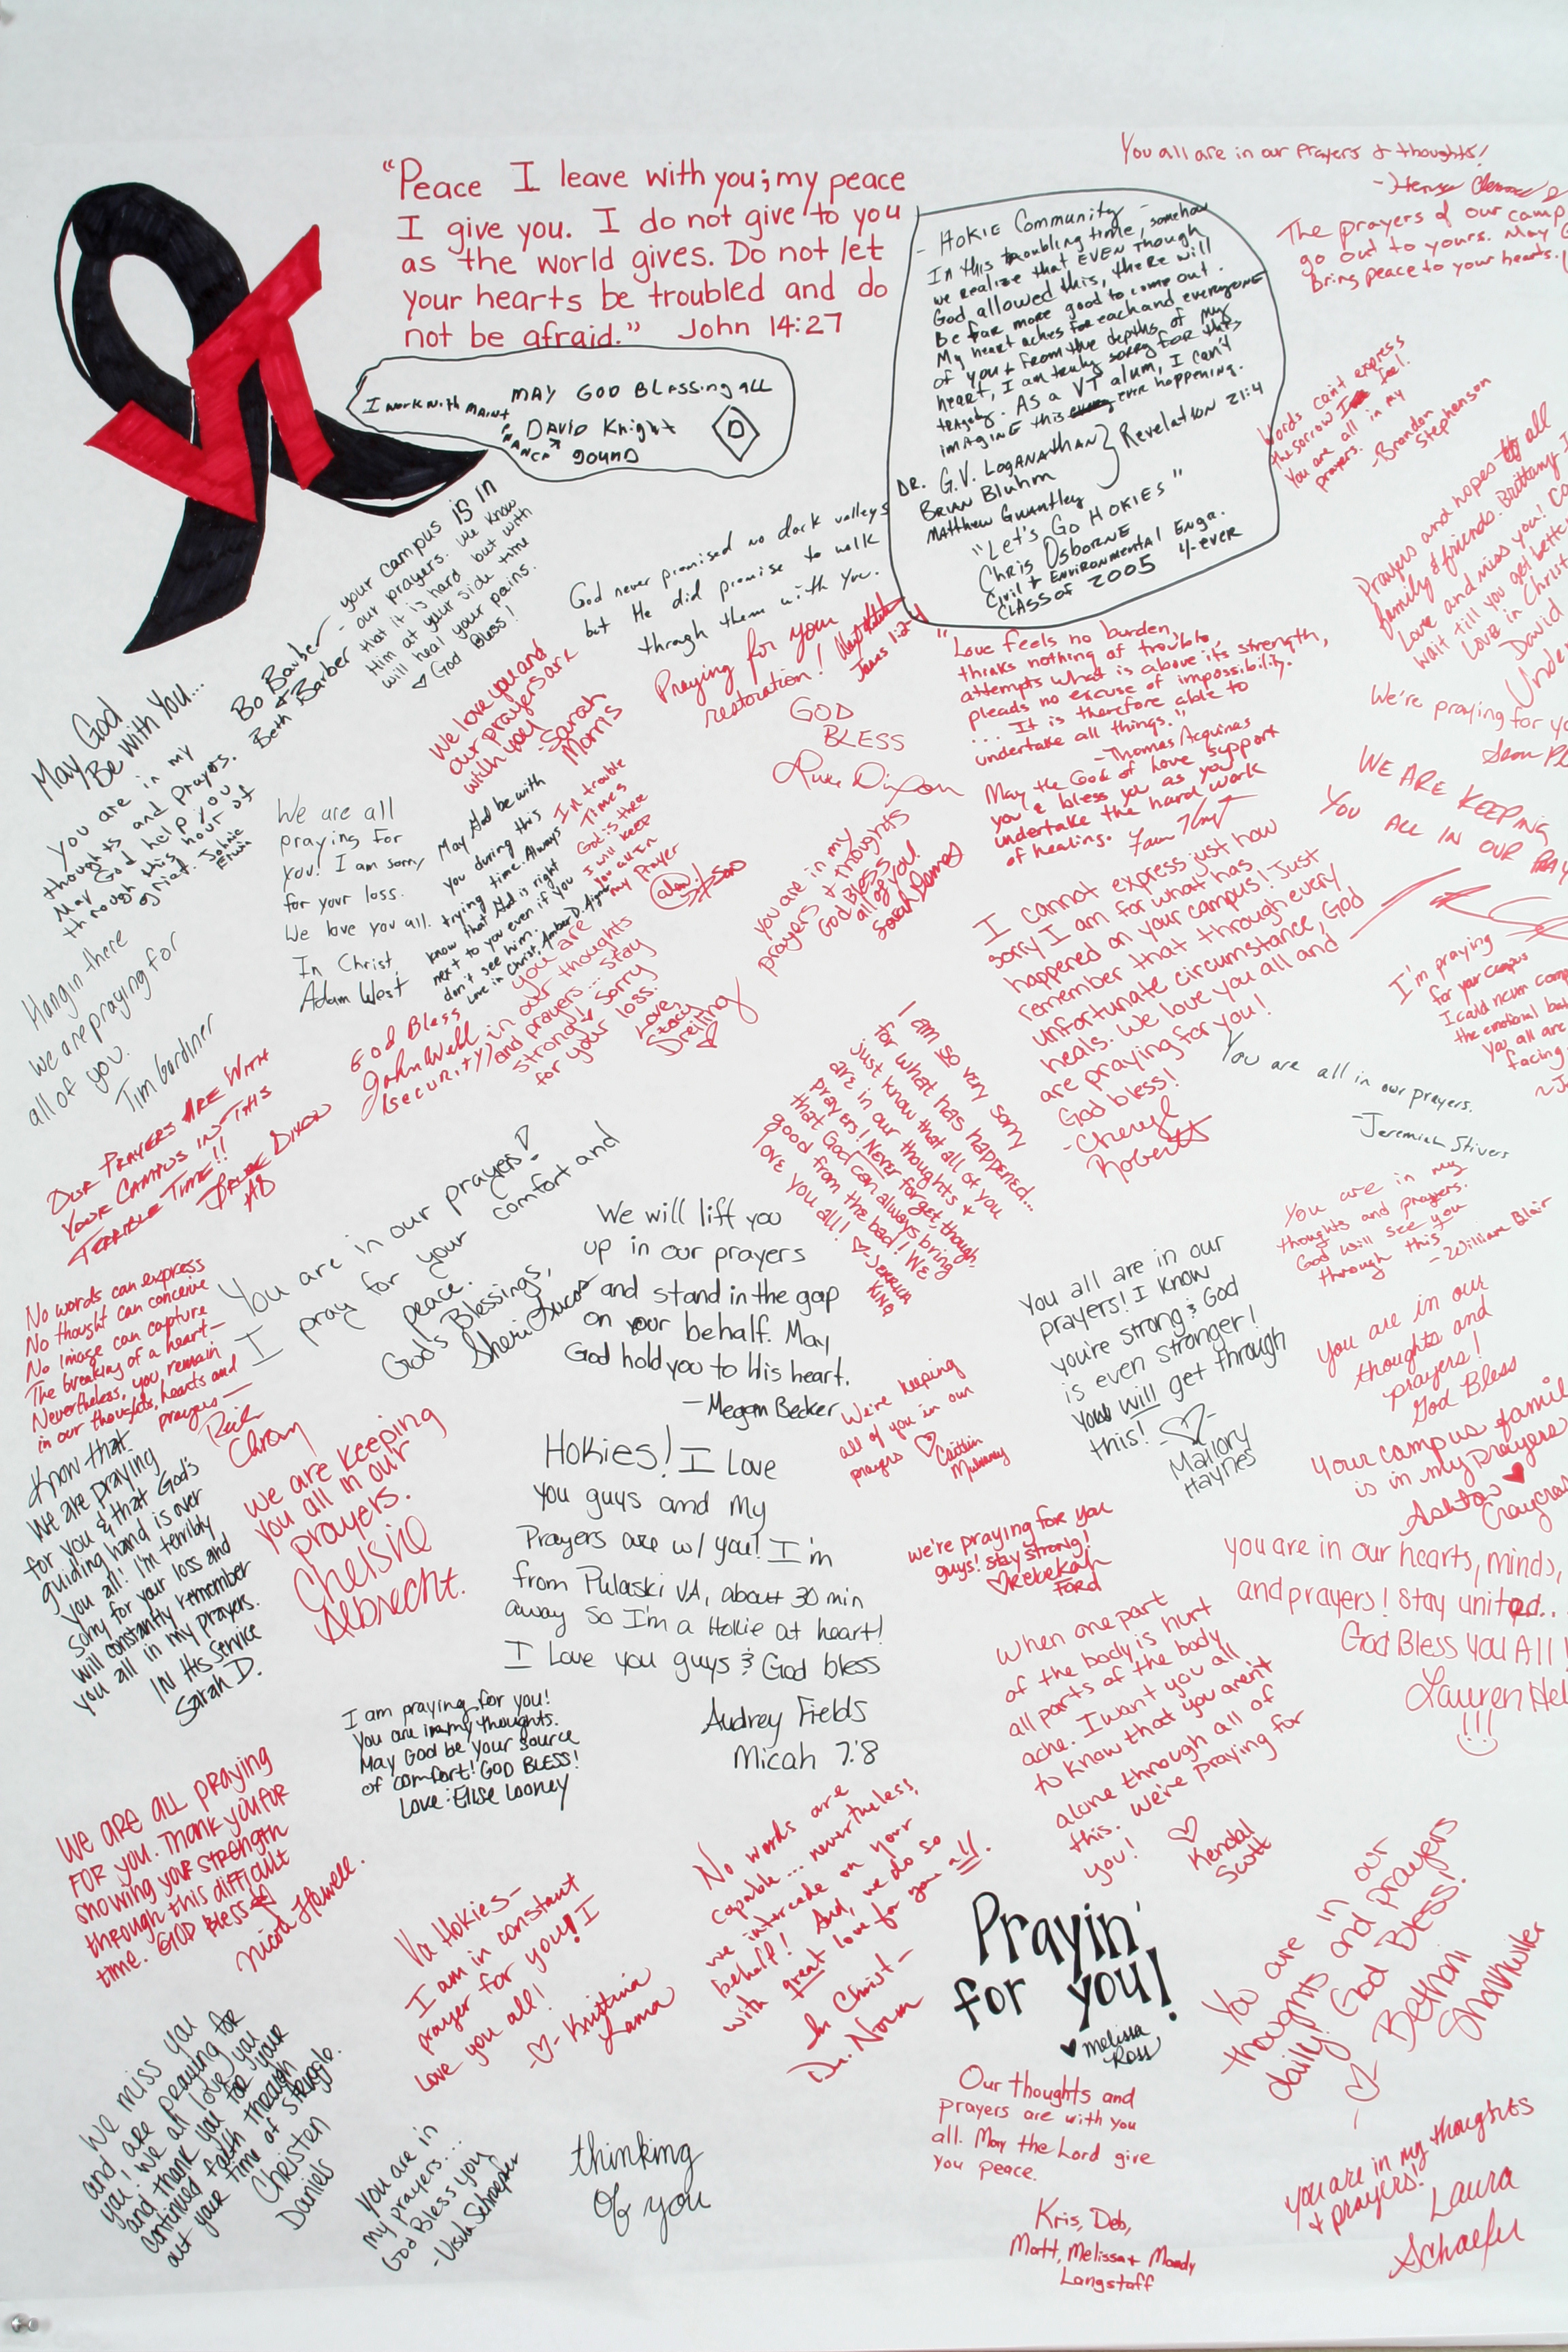 VT
"Peace I leave with you; my peace
I give you. I do not give to you
as the world gives. Do not let
your hearts be troubled and do
not be afraid." John 14:27
MAY GOD Blessing all
I work with
David Knight
D
You all are in our prayers & thoughts!
The prayers of our camp
go out to yours. May
bring peace to your hearts.
- HOKIE Community -
In this troubling time, somehow
we realize that EVEN Though
God allowed this, there will
Be far more good to come out.
My heart aches for each and everyone
of you & from the depths of my
heart, I am truly sorry for this
tragedy. As a VT alum, I can't
imagine this ever happening.
DR. G.V. Loganathan
Brian Bluhm
Matthew Gwaltney
Revelation 21:4
"Let's Go HOKIES"
Chris Osborne
Civil & Environmental Engr.
CLASS of 2005 4-ever
Words can't express
the sorrow I feel.
You are all in my
prayers. -Brandon
Stephenson
Prayers and hopes to all
family & friends. Brittany
Love and miss you!
wait till you get better
Love in Christ
David
We're praying for yo
WE ARE KEEPING
YOU ALL IN OUR
Bo Barber
&
Beth Barber
- your campus is in
- our prayers. We know
that it is hard but with
Him at your side time
will heal your pains.
♡ God Bless!
God never promised no dark valleys
but He did promise to walk
through them with you.
Praying for your
restoration!
James 1:2-4
GOD
BLESS
Luke Dixon
"Love feels no burden,
thinks nothing of trouble,
attempts what is above its strength,
pleads no excuse of impossibility.
... It is therefore able to
undertake all things."
-Thomas Acquinas
May the God of love support
you & bless you as you
undertake the hard work
of healing.
May God
Be with You...
you are in my
thoughts and prayers.
May God help you
through this hour of
grief. Johnie
Erwin
We love you and
our prayers are
with you
-Sarah
Morris
We are all
praying for
you! I am sorry
for your loss.
We love you all.
In Christ,
Adam West
May God be with
you during this
trying time. Always
know that God is right
next to you even if you
don't see him.
Love in Christ, Amber D.
In trouble
Times
God is there
I will keep
you all in
my Prayer
you are in my
prayers & thoughts
God Bless
all of you!
Sarah
I cannot express just how
sorry I am for what has
happened on your campus! Just
remember that through every
unfortunate circumstance, God
heals. We love you all and
are praying for you!
God bless!
-Cheryl
Roberts
I'm praying
for your campus
the emotional
You all are
facing
Hang in there
we are praying for
all of you.
Tim Gardner
God Bless
John Webb
(security)
you are
in our thoughts
and prayers... stay
strong! Sorry
for your loss.
Love,
Stacy
Dreiling
OUR PRAYERS ARE WITH
YOUR CAMPUS IN THIS
TERRIBLE TIME!!
I am so very sorry
for what has happened...
just know that all of you
are in our thoughts &
prayers! Never forget, though,
that God can always bring
good from the bad! We
love you all! ♡-Jerrica
King
You are all in our prayers.
-Jeremiah Stivers
You are in my
thoughts and prayers.
God will see you
through this
-William Blair
You are in our prayers!
I pray for your comfort and
peace.
God's Blessings,
Sheri Lucas
We will lift you
up in our prayers
and stand in the gap
on your behalf. May
God hold you to His heart.
-Megan Becker
No words can express
No thought can conceive
No image can capture
The breaking of a heart-
Nevertheless, you remain
in our thoughts, hearts and
prayers-
You all are in our
prayers! I know
you're strong & God
is even stronger!
You will get through
this! -♡-
Mallory
Haynes
you are in our
thoughts and
prayers!
God Bless
We're keeping
all of you in our
prayers ♡ Caitlin
Your campus famil
is in my prayers
Ashton
Know that
we are praying
for you & that God's
guiding hand is over
you all! I'm terribly
sorry for your loss and
will constantly remember
you all in my prayers.
IN His Service
Sarah D.
we are keeping
you all in our
prayers.
Chelsie
Albrecht.
Hokies! I Love
you guys and my
Prayers are w/ you! I'm
from Pulaski VA, about 30 min
away so I'm a Hokie at heart!
I Love you guys & God bless
Audrey Fields
Micah 7:8
we're praying for you
guys! stay strong!
♡Rebekah
Ford
you are in our hearts, minds,
and prayers! Stay united..
God Bless You All!
Lauren Hel
!!!
When one part
of the body is hurt
all parts of the body
ache. I want you all
to know that you aren't
alone through all of
this. We're praying for
you! ♡
Kendal
Scott
I am praying for you!
You are in my thoughts.
May God be your source
of comfort! GOD BLESS!
Love: Elise Looney
WE ARE ALL PRAYING
FOR YOU. Thank you for
showing your strength
through this difficult
time. GOD Bless
Nicole Howell.
Va Hokies-
I am in constant
prayer for you! I
love you all!
-♡- Kristina
Lama
No words are
capable... nevertheless,
we intercede on your
behalf! And, we do so
with great love for you all.
In Christ-
Dr. Norm
Prayin'
for you!
♥ Melissa
Ross
You are in our
thoughts and prayers
daily! God Bless!
-♡ Bethani
Showmuller
We miss you
and are praying for
you! We all love you
and thank you for your
continued faith through
out your time of struggle.
Christen
Daniels
you are in
my prayers...
God Bless you
-Ursula Schroepfer
thinking
of you
Our thoughts and
prayers are with you
all. May the Lord give
you peace.
Kris, Deb,
Matt, Melissa & Mandy
Langstaff
you are in my thoughts
& prayers!
Laura
Schaefer